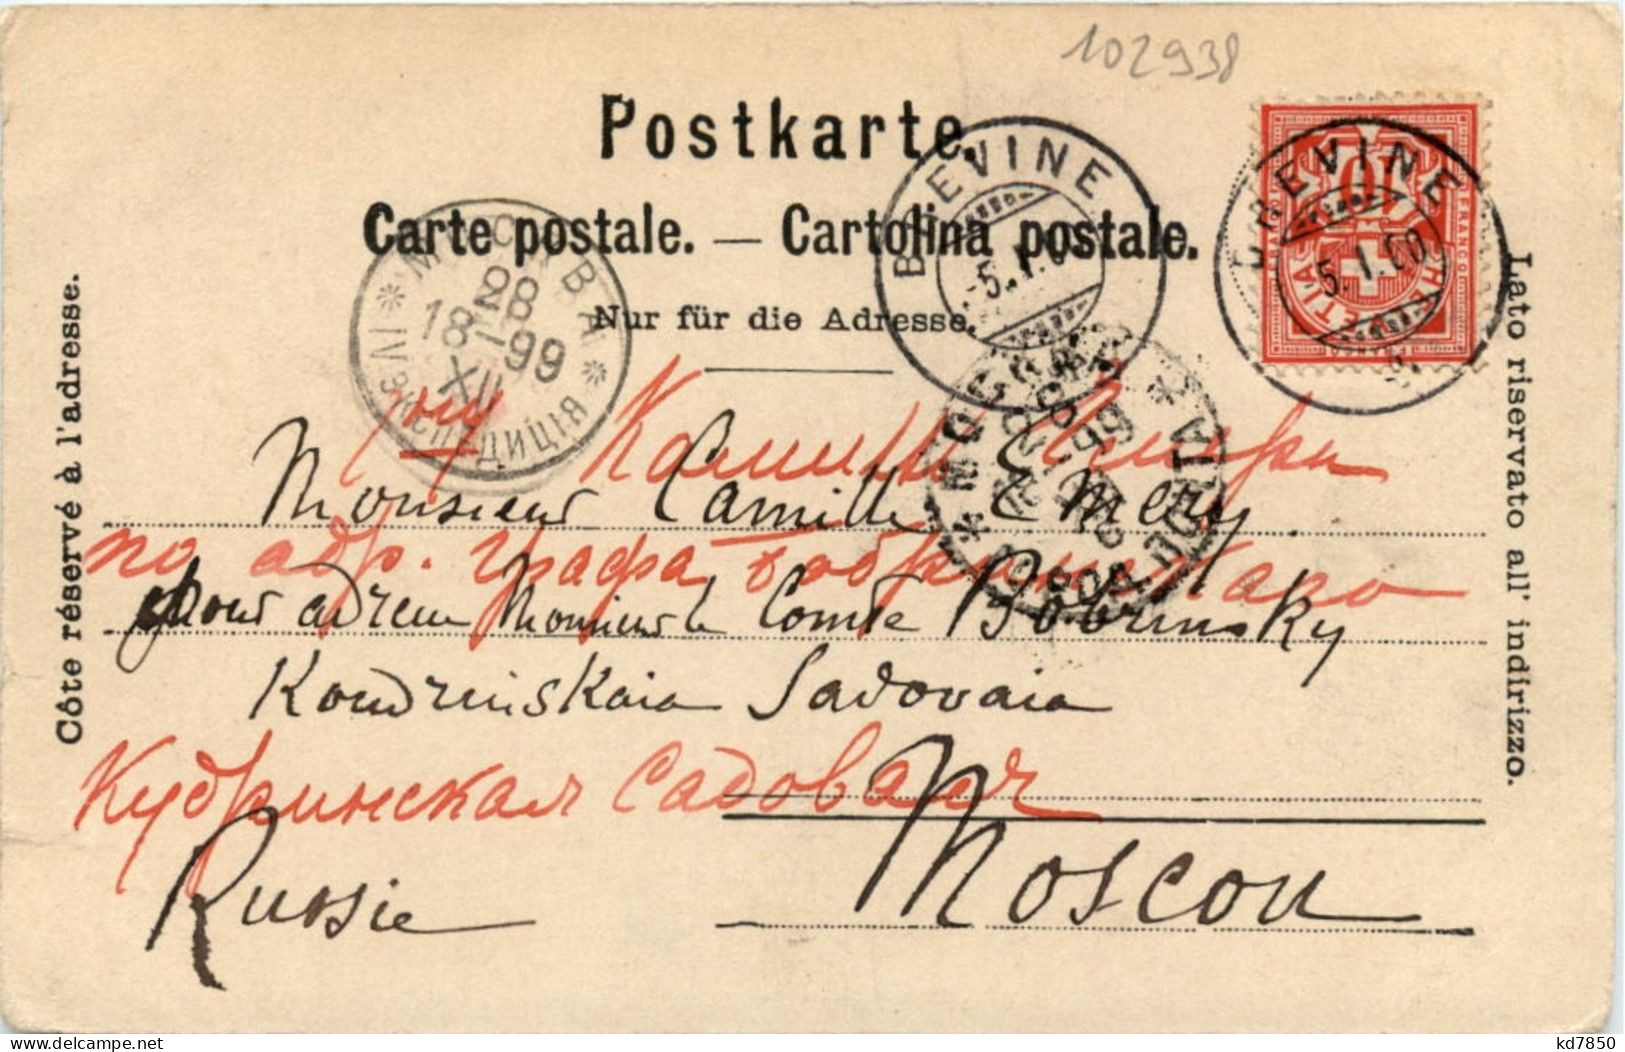 102938
Postkarte.
Carte postale. — Cartolina postale.
Nur für die Adresse.
Côte réservé à l'adresse.
Lato riservato all' indirizzo.
BREVINE
-5.I.00
BREVINE
5.I.00
FRANCO
HELVETIA
10
МОСКВА
28
18-99
XII
IV ЭКСПЕДИЦІЯ
МОСКВА
ГОРОД. ПОЧТА
Камиллъ Эмери
Monsieur Camille Emery
по адр. графа Бобринскаго
pour adresse Monsieur le Comte Bobrinsky
Koudrinskaia Sadovaia
Кудринская Садовая
Moscou
Russie
kd7850